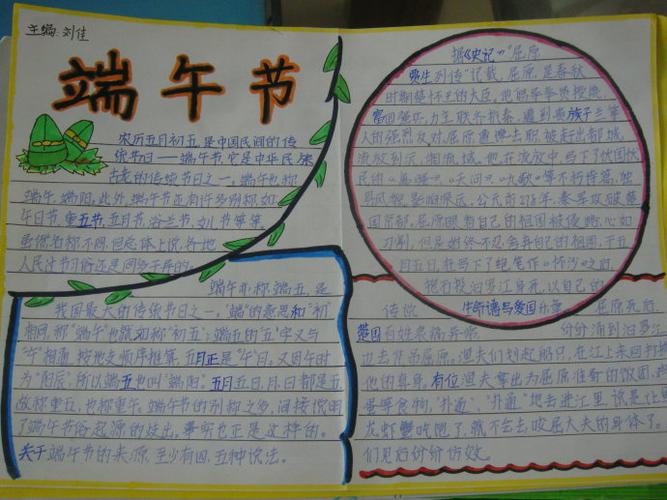 主编:刘佳
端午节
农历五月初五,是中国民间的传
统节日——端午节,它是中华民族
古老的传统节日之一。端午也称
端午,端阳。此外,端午节还有许多别称,如:
午日节、重五节,五月节、浴兰节、女儿节等等。
虽然名称不同,但总体上说,各地
人民过节习俗还是同多于异的。
端午也称端五,是
我国最大的传统节日之一。"端"的意思和"初"
相同,称"端午"也就如称"初五";端五的"五"字又与
"午"相通,按地支顺序推算,五月正是"午"月。又因午时
为"阳辰",所以端五也叫"端阳"。五月五日,月、日都是五,
故称重五,也称重午。端午节的别称之多,间接说明
了端午节俗起源的歧出。事实也正是这样的。
关于端午节的来源,至少有四、五种说法。
据《史记》"屈原
贾生列传"记载,屈原,是春秋
时期楚怀王的大臣。他倡导举贤授能,
富国强兵,力主联齐抗秦,遭到贵族子兰等
人的强烈反对,屈原遭馋去职,被赶出都城,
流放到沅、湘流域。他在流放中,写下了忧国忧
民的《离骚》、《天问》、《九歌》等不朽诗篇,独
具风貌,影响深远。公元前278年,秦军攻破楚
国京都。屈原眼看自己的祖国被侵略,心如
刀割,但是始终不忍舍弃自己的祖国,于五
月五日,在写下了绝笔作《怀沙》之后,
抱石投汨罗江身死,以自己的
生命谱写爱国乐章
传说 屈原死后
楚国百姓哀痛异常 纷纷涌到汨罗江
边去凭吊屈原。渔夫们划起船只,在江上来回打捞
他的真身。有位渔夫拿出为屈原准备的饭团、鸡
蛋等食物,"扑通"、"扑通"地丢进江里,说是让鱼
龙虾蟹吃饱了,就不会去咬屈大夫的身体了。人
们见后纷纷仿效。